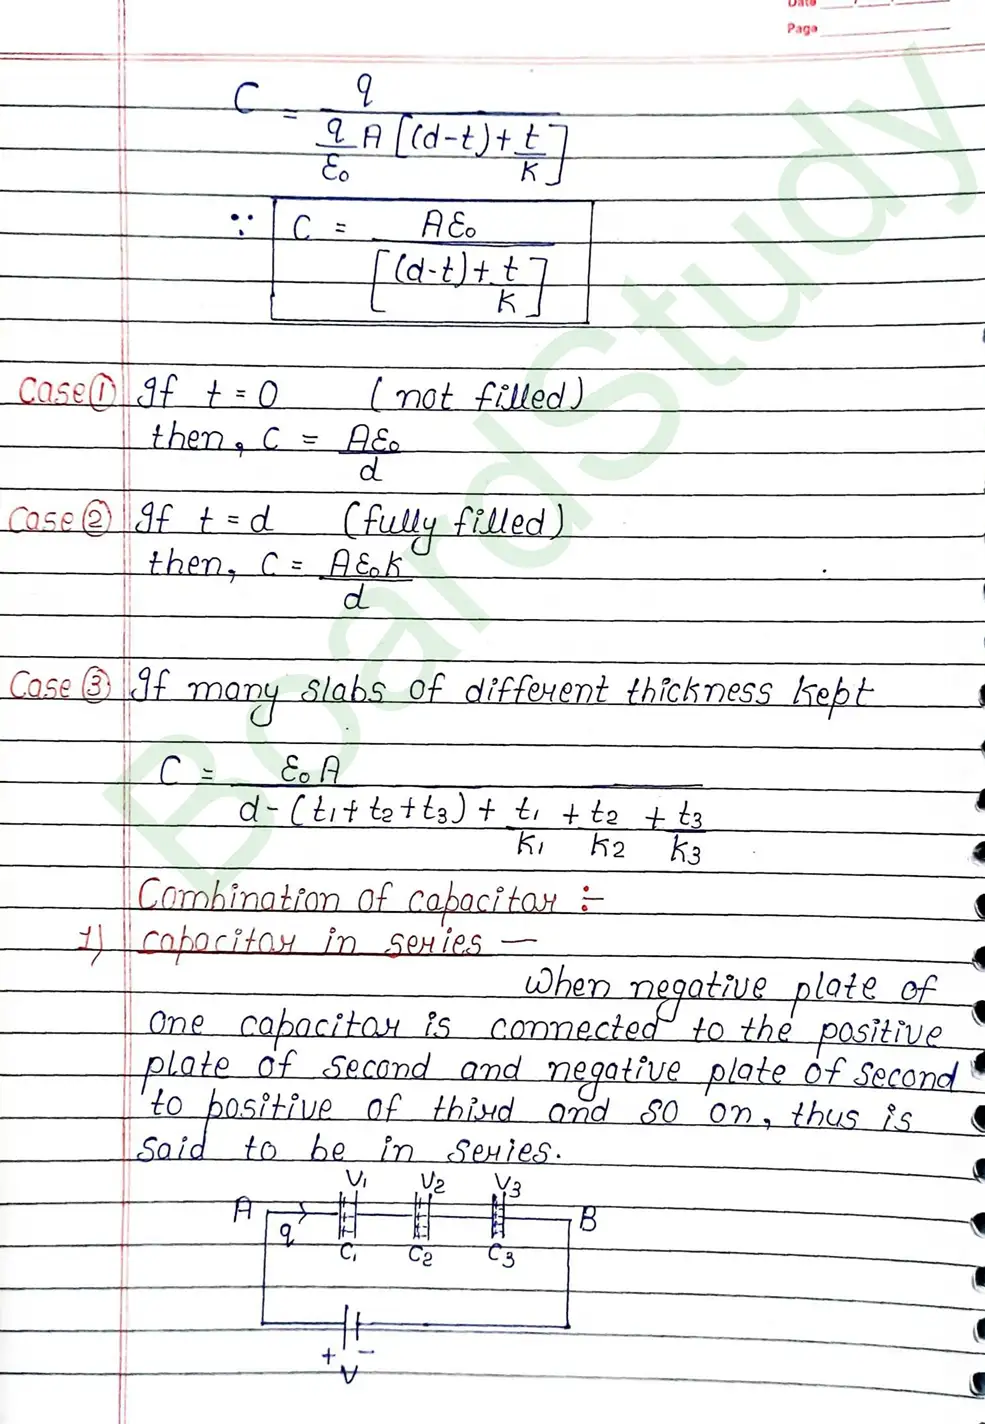 Date
Page
C = q
q/ε₀ A [(d-t) + t/K]
∵ C = Aε₀
[(d-t) + t/K]
Case ① If t = 0 (not filled)
then, C = Aε₀
d
Case ② If t = d (fully filled)
then, C = Aε₀k
d
Case ③ If many slabs of different thickness kept
C = ε₀A
d - (t₁ + t₂ + t₃) + t₁/K₁ + t₂/K₂ + t₃/K₃
Combination of capacitor :-
1) capacitor in series —
When negative plate of
one capacitor is connected to the positive
plate of second and negative plate of second
to positive of third and so on, thus is
said to be in series.
V₁ V₂ V₃
A q B
C₁ C₂ C₃
+ -
V
BoardStudy